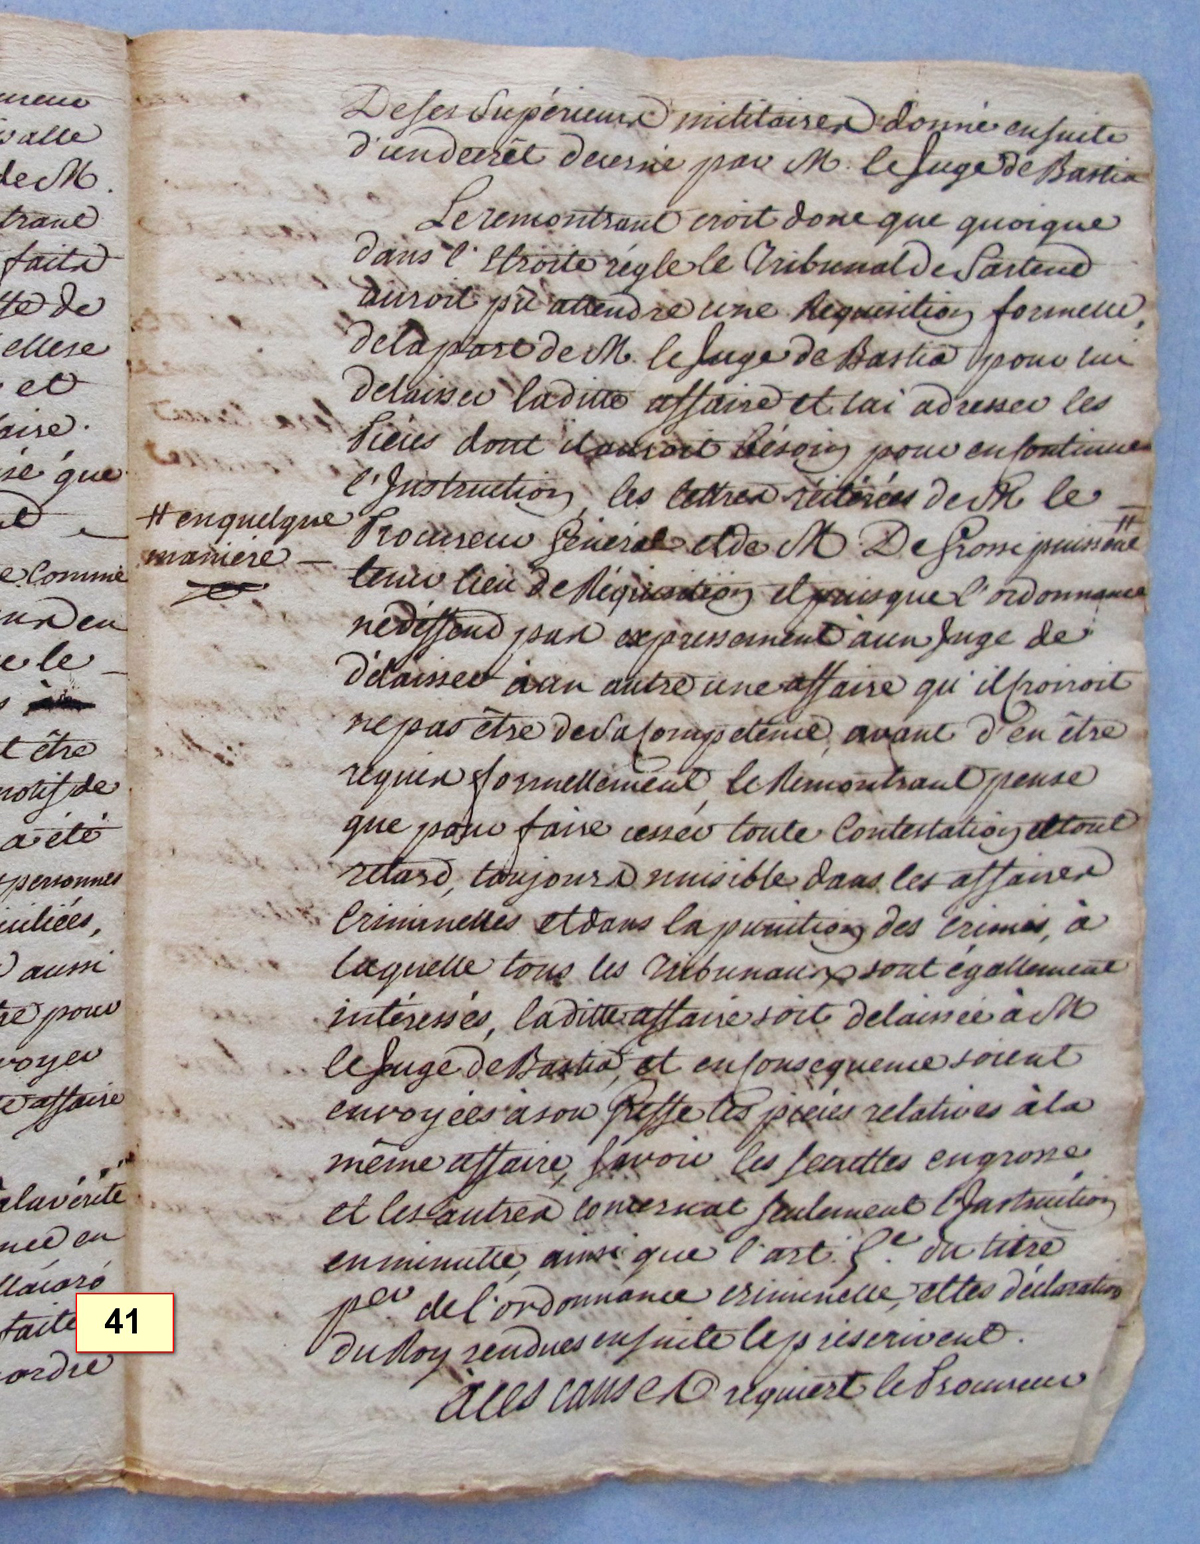 ureur
de M.
trant
faits
tte de
ellese
et
aire.
que
e comme
eur en
e le
t être
motif de
a été
personnes
aussi
pour
voyer
te affaire
à la vérité
née en
faite
ordre
41
# en quelque
maniere
De ses Supérieurs militaires donné ensuite
d'un decrêt decerné par M. le Juge de Bastia
Le remontrant croit donc que quoique
dans l'étroite régle le Tribunal de Sartene
auroit pû attendre une Requisition formelle,
de la part de M. le Juge de Bastia pour lui
delaisser laditte affaire et lui adresser les
Piéces dont il auroit bésoin pour en continuer
l'Instruction, les lettres réitérées de M le
Procureur Général et de M De Grossi puissent #
tenir lieu de Réquisition et puisque l'ordonnance
ne déffend pas expressement à un Juge de
délaisser à un autre une affaire qu'il croiroit
ne pas être de sa Competence, avant d'en être
requis formellement, le Remontrant pense
que pour faire cesser toute Contestation et tout
retard, toujours nuisible dans les affaires
Criminelles et dans la punition des crimes, à
laquelle tous les Tribunaux sont égallement
intéressés, laditte affaire soit delaissée à M
le Juge de Bastia, et en consequence soient
envoyées à son Greffe les piéces relatives à la
même affaire, savoir les secrettes en grosse
et les autres concernat seulement l'Instruction
en minutte, ainsi que l'art. 5.e du titre
p.er de l'ordonnance criminelle, et les déclarations
du Roy rendues ensuite le préscrivent.
à ces causes requiert le Procureur